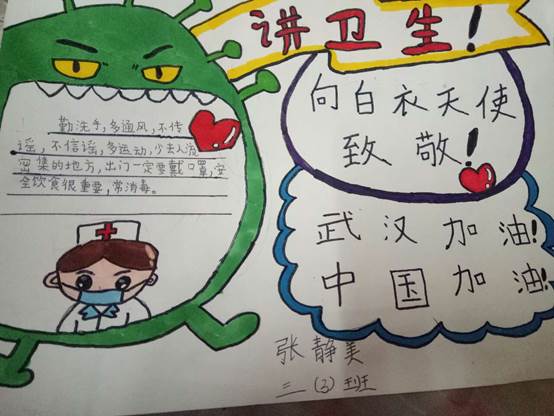 讲卫生!
勤洗手,多通风,不传
谣,不信谣,多运动,少去人流
密集的地方,出门一定要戴口罩,安
全饮食很重要,常消毒。
向白衣天使
致敬!
武汉加油!
中国加油!
张静美
三(3)班